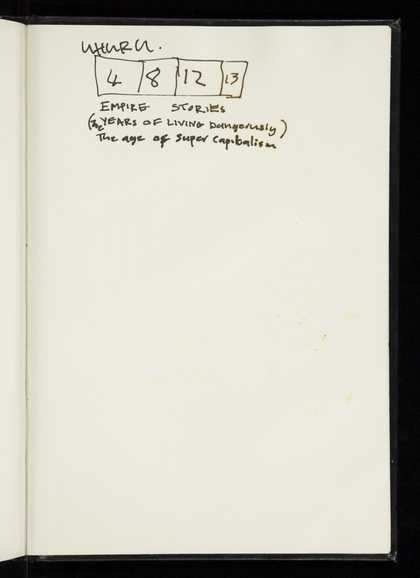 4 8 12 13
EMPIRE STORIES
(The YEARS OF LIVING Dangerously)
The age of Super Capitalism